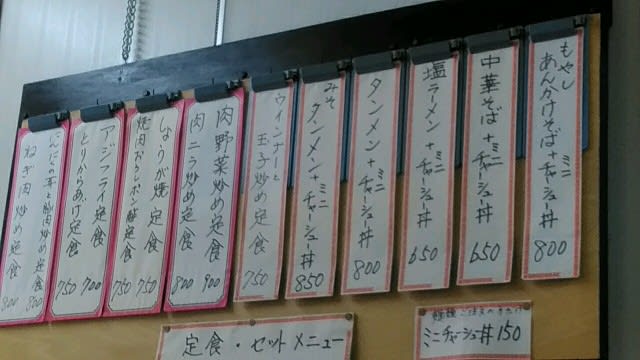 もやし
あんかけそば+ミニチャーシュー丼
800
中華そば+ミニチャーシュー丼
650
塩ラーメン+ミニチャーシュー丼
650
タンメン+ミニチャーシュー丼
800
みそ
タンメン+ミニチャーシュー丼
850
ウインナーと
玉子炒め定食
750
肉野菜炒め定食
900
肉ニラ炒め定食
800
しょうが焼定食
750
焼肉おろしポン酢定食
750
アジフライ定食
700
とりからあげ定食
750
にんにくの芽と豚肉炒め定食
800
ねぎ肉炒め定食
800
定食・セットメニュー
麺類ご注文の方だけ
ミニチャーシュー丼150